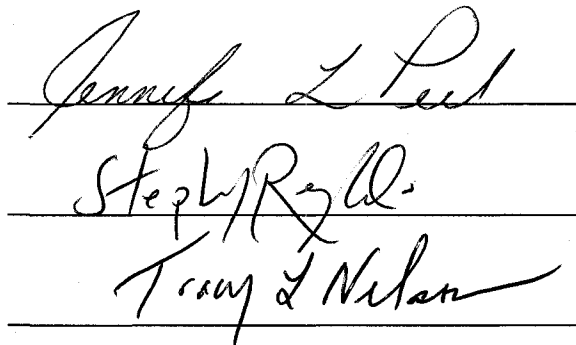 Jennifer L Peel
Stephen Reynolds
Tracy L Nelson